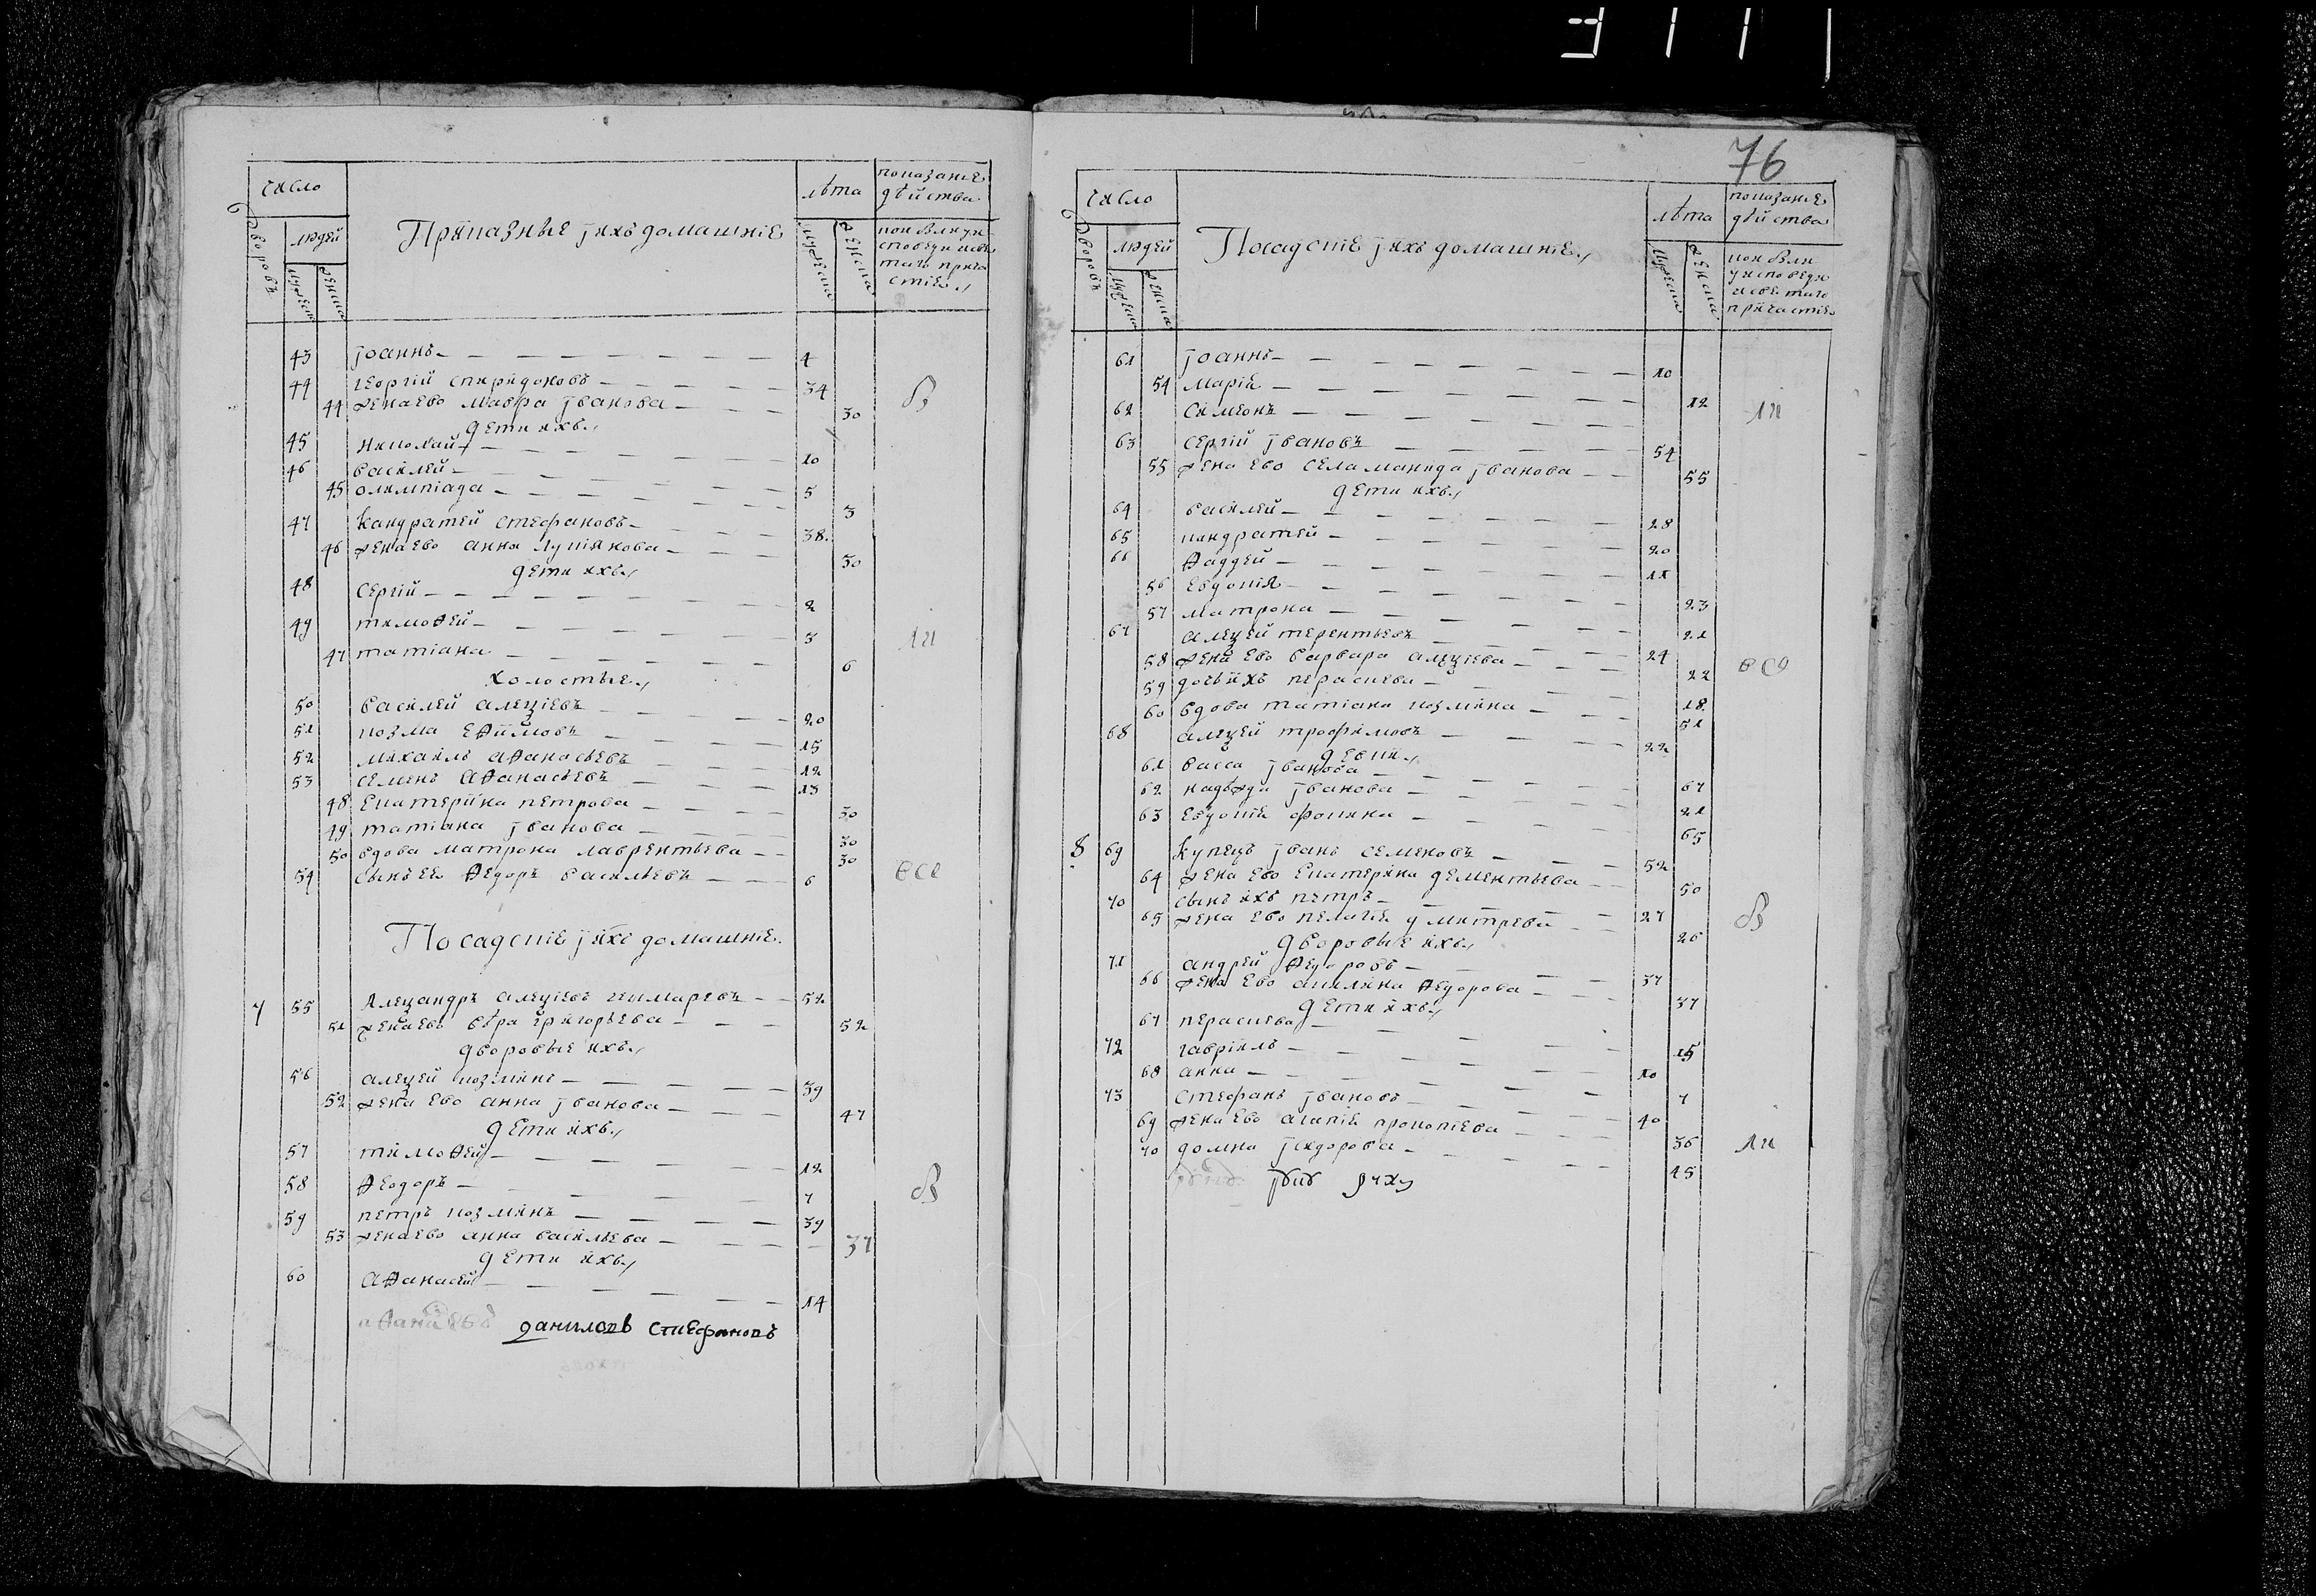 число
дворовъ
людей
мужеска
женска
Приказные і ихъ домашніе
лѣта
мужеска
женска
показаніе
дѣйства
43 іоаннъ 4
44 георгій спиридоновъ 34
44 жена ево мавра іванова 30
В
дети ихъ
45 николай 10
46 василей 5
45 олимпіада 3
47 кандратей стефановъ 38
46 жена ево анна лупіянова 30
дети ихъ
48 сергій 2
49 тимоѳей 3
47 татіана 6
холостые
50 василей алеѯіевъ 20
51 козма еѳимовъ 15
52 михаилъ аѳанасьевъ 12
53 семенъ аѳанасьевъ 13
48 екатерина петрова 30
49 татіана іванова 30
50 вдова матрона лаврентьева 30
54 сынъ ее ѳедоръ васильевъ 6
все
Посадскіе і ихъ домашніе
7 55 Алеѯандръ алеѯіевъ 52
51 жена ево вѣра григорьева 52
дворовые ихъ
56 алеѯей козминъ 39
52 жена ево анна іванова 47
дети ихъ
57 тимоѳей 12
58 ѳеодоръ 7
В
59 петръ козминъ 39
53 жена ево анна васильева 37
дети ихъ
60 аѳанасей 14
даниловъ стиефановъ
76
число
дворовъ
людей
мужеска
женска
Посадскіе і ихъ домашніе
лѣта
мужеска
женска
показаніе
дѣйства
61 іоаннъ 10
54 марія 12
62 симеонъ
63 сергій івановъ 54
55 жена ево селаманида іванова 55
дети ихъ
64 василей 28
65 кандратей 20
66 ѳаддей 11
56 евдокія 23
57 матрона 21
67 алеѯей терентьевъ 24
58 жена ево варвара алеѯіева 22
все
59 дочь ихъ пераскева 18
60 вдова татіана козмина 51
68 алеѯей трофимовъ 22
девки
61 васса іванова 67
62 надежда іванова 21
63 евдокія фокина 65
8 69 купецъ іванъ семеновъ 52
64 жена ево екатерина дементьева 50
70 сынъ ихъ петръ 27
65 жена ево пелагея дмитрева 26
В
дворовые ихъ
71 андрей ѳедоровъ 37
66 жена ево акилина ѳедорова 37
дети ихъ
67 пераскева 15
72 гавріилъ 10
68 анна 7
73 стефанъ івановъ 40
69 жена ево агапія прокопіева 36
70 домна ісидорова 45